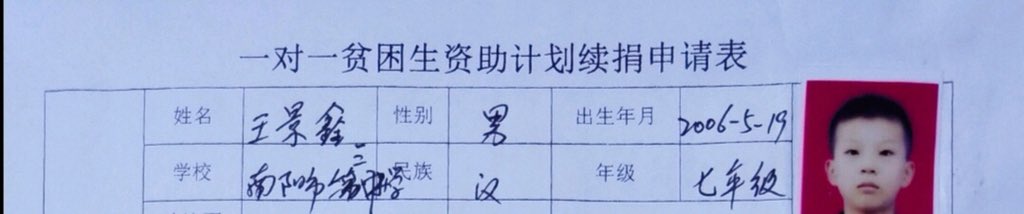 一对一贫困生资助计划续捐申请表
姓名 王景鑫 性别 男 出生年月 2006-5-19
学校 南阳市第二中学 民族 汉 年级 七年级